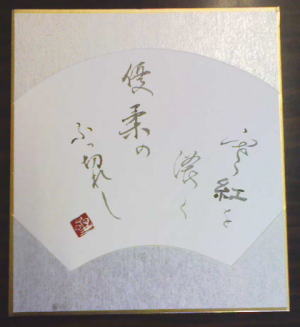 寒紅を
濃く
優柔の
ふつ切れし